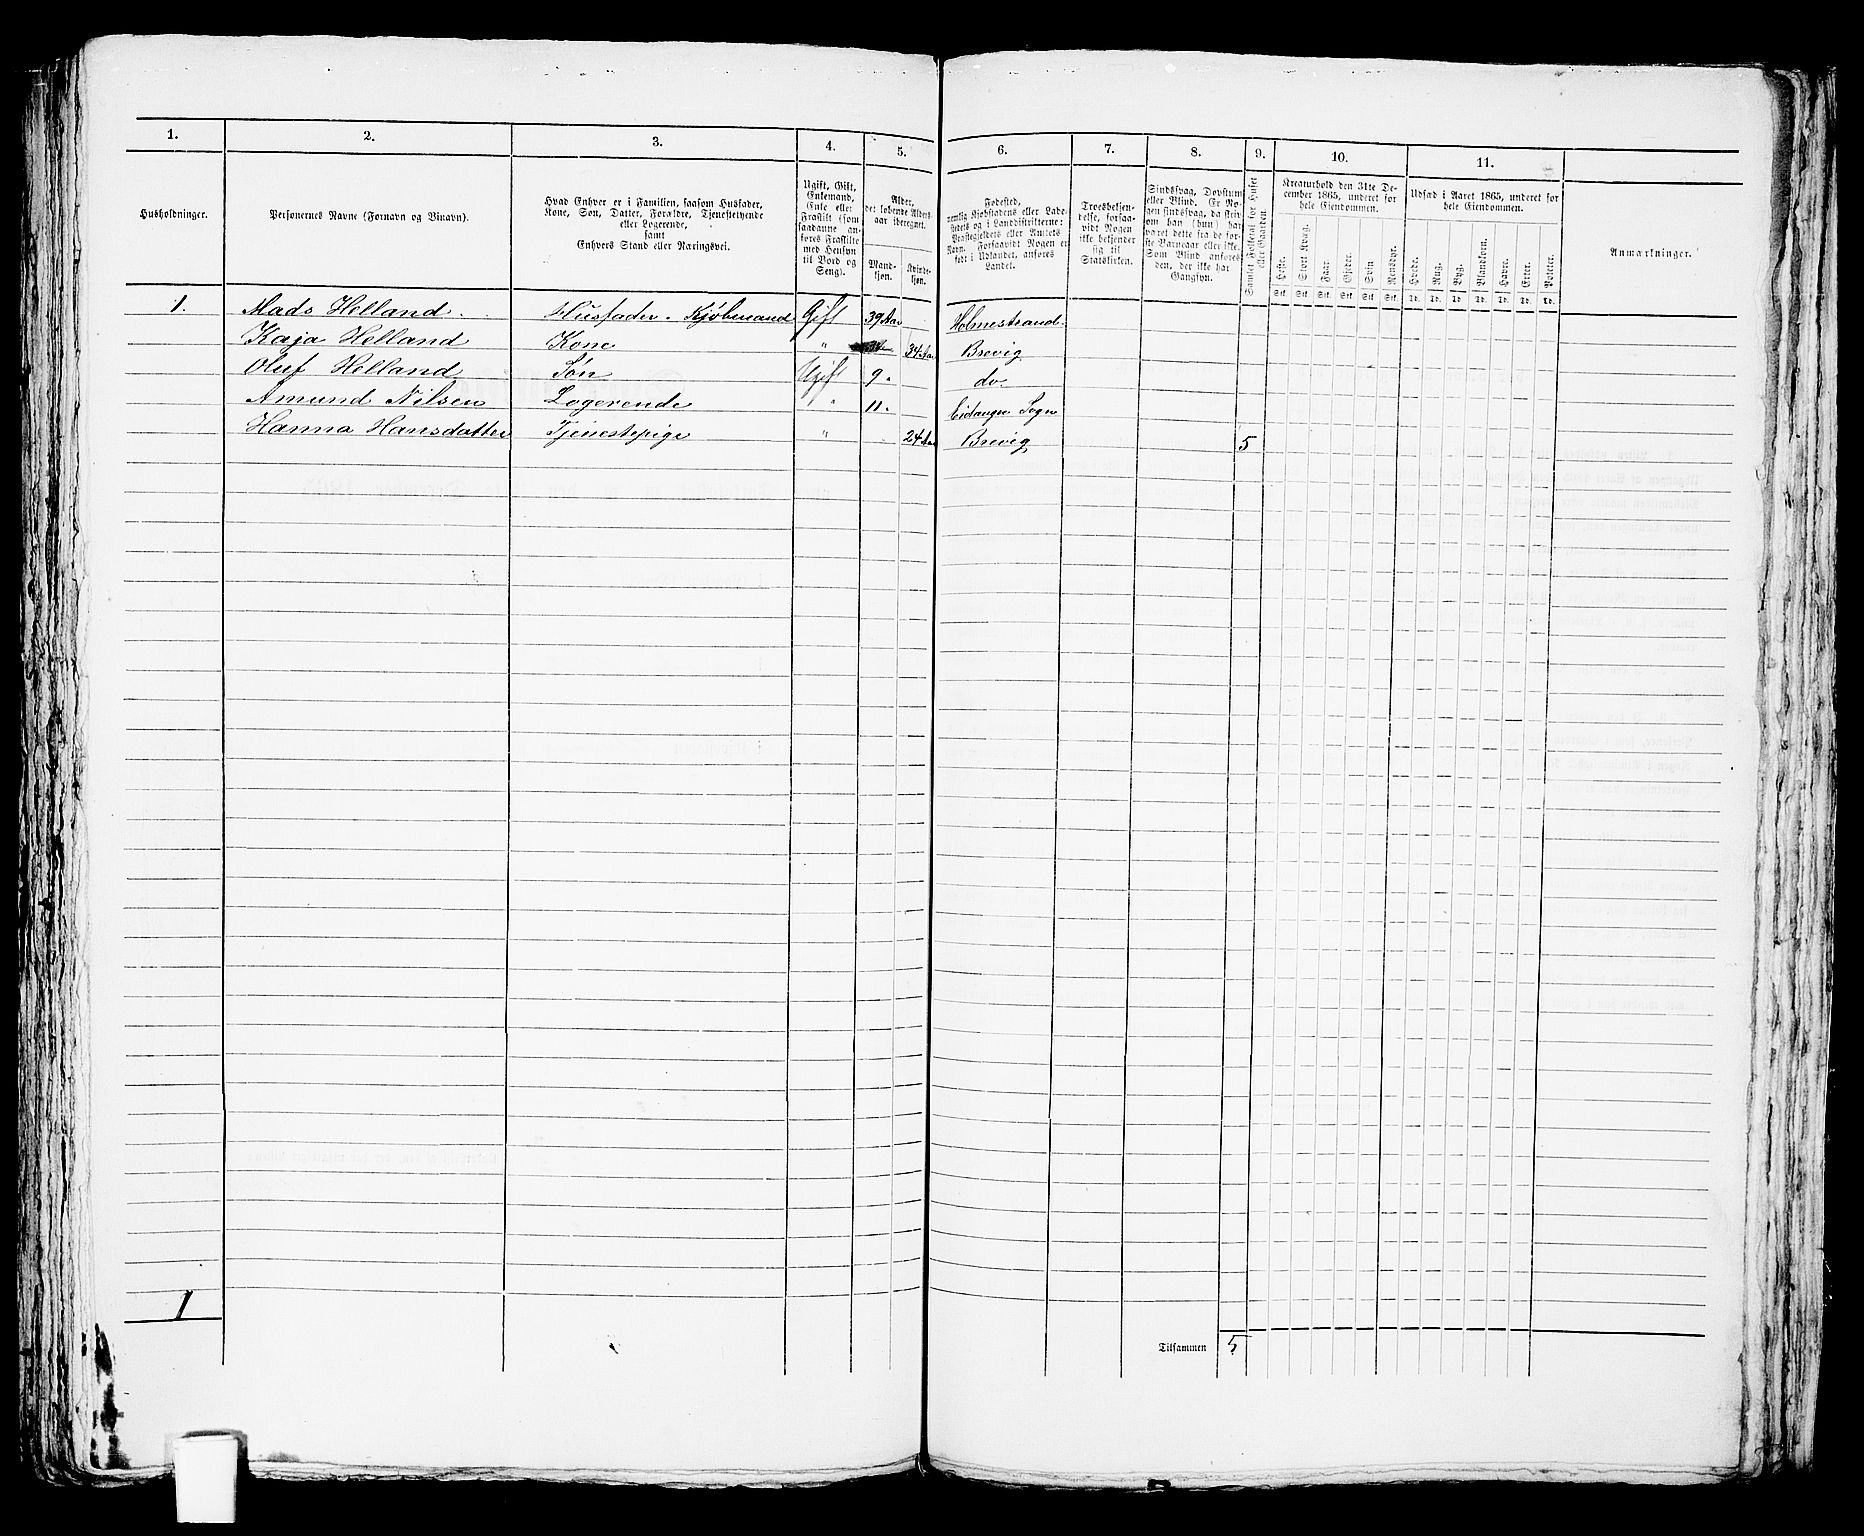 1. 2. 3. 4. 5. 6. 7. 8. 9. 10. 11.
Husholdninger.
Personernes Navne (Fornavn og Tilnavn).
Hvad Enhver er i Familien, saasom Husfader,
Kone, Søn, Datter, Forældre, Tjenestetyende
eller Logerende,
samt
Enhvers Stand eller Næringsvei.
Ugift, Gift,
Enkemand,
Enke eller
Fraskilt (som
saadanne an-
føres Fraskilte
med Hensyn
til Bord og
Seng).
Alder,
det løbende Alders-
aar iberegnet.
Mand-
kjøn.
Kvinde-
kjøn.
Fødested,
nemlig Kjøbstadens eller Lade-
stedets og i Landdistrikterne:
Præstegjeldets eller Amtets
Navn. Forsaavidt Nogen er
født i Udlandet, anføres
Landet.
Troesbekjen-
delse, forsaa-
vidt Nogen
ikke bekjender
sig til
Statskirken.
Sindssvag, Døvstum
eller Blind. Er No-
gen sindssvag, da skriv
om han (hun) har
været dette fra de før-
ste Barneaar eller ikke.
Som Blind anføres
den, der ikke har
Gangsyn.
Samlet Folketal for Huset
eller Gaarden.
Kreaturhold den 31te De-
cember 1865, underet for
hele Eiendommen.
Heste. Stort Kvæg. Faar. Gjeder. Svin. Rensdyr.
Stk. Stk. Stk. Stk. Stk. Stk.
Udsæd i Aaret 1865, underet for
hele Eiendommen.
Hvede. Rug. Byg. Blandkorn. Havre. Erter. Poteter.
Td. Td. Td. Td. Td. Td. Td.
Anmærkninger.
1. Mads Helland. Husfader. Kjøbmand Gift 39 Aar Holmestrand.
Kaja Helland Kone " 34 Aar Brevig
Oluf Helland Søn Ugift 9 " do.
Amund Nilsen Logerende " 11 " Eidanger Sogn
Hanna Hansdatter Tjenestepige " 24 Aar Brevig 5
1
Tilsammen 5